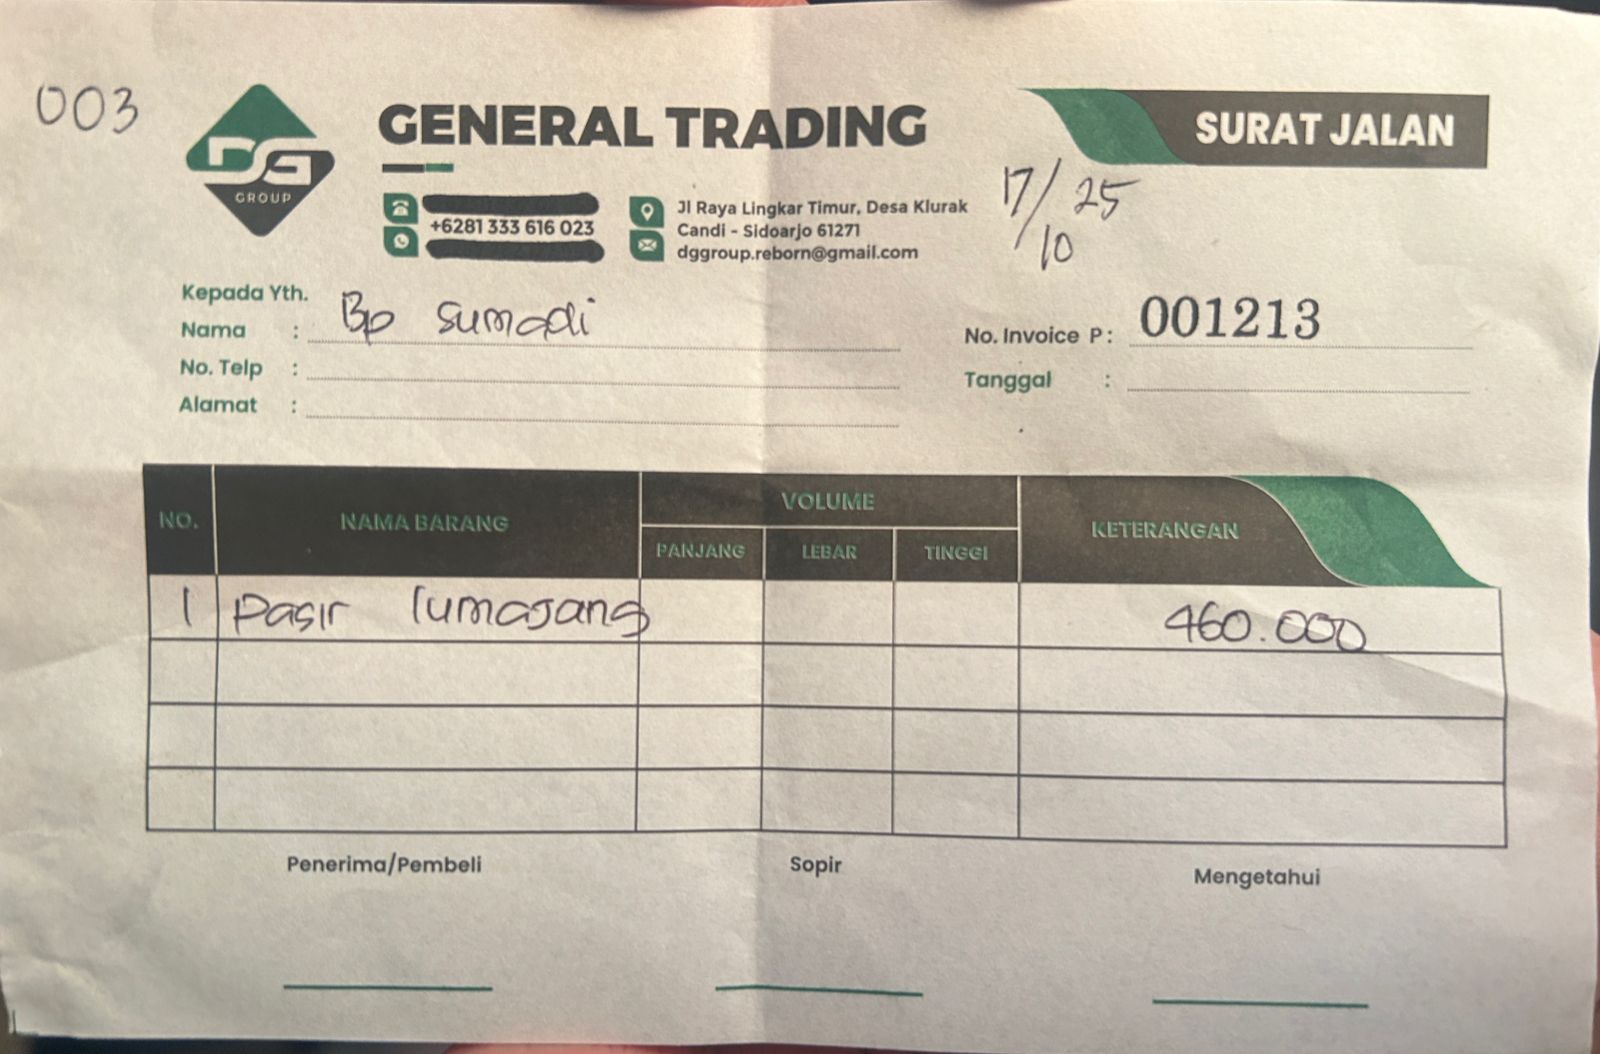 003
DG
GROUP
GENERAL TRADING
SURAT JALAN
+6281 333 616 023
Jl Raya Lingkar Timur, Desa Klurak
Candi - Sidoarjo 61271
dggroup.reborn@gmail.com
17/10 25
Kepada Yth.
Nama : Bp Sumadi
No. Telp :
Alamat :
No. Invoice P : 001213
Tanggal :
NO. NAMA BARANG VOLUME KETERANGAN
PANJANG LEBAR TINGGI
1 Pasir lumajang 460.000
Penerima/Pembeli Sopir Mengetahui